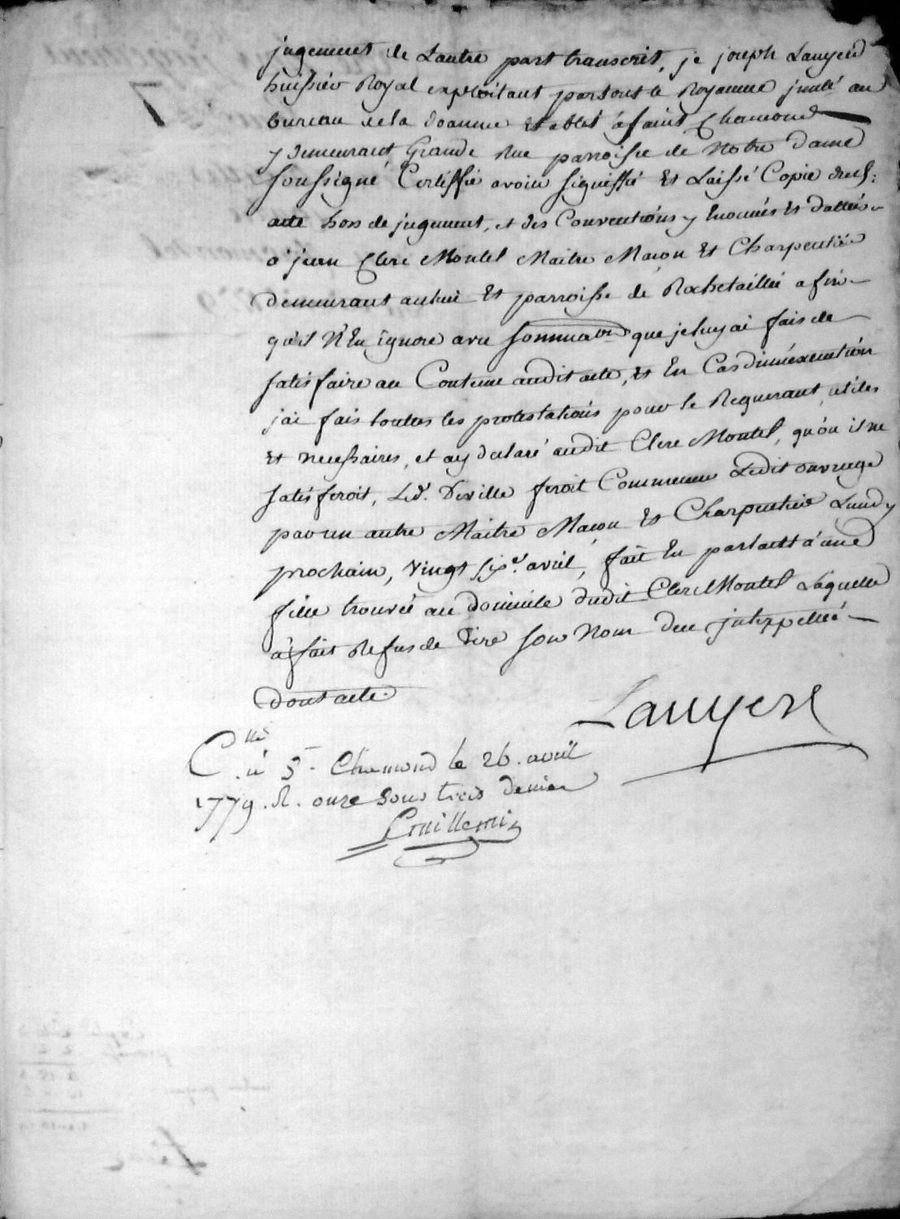 jugement de Lautre part transcrit, je joseph Lauyere
huissier Royal exploitant partout le Royaume jmté au
bureau de la doanne Etablit à saint Chamond
y demeurant Grande Rue parroisse de Notre dame
soussigné Certiffié avoir signiffié Et Laissé Copie dud:
acte hors de jugement, et des Conventions y Enoncés Et dattés
a jean Clere Montel Maitre Macon Et Charpentié
demeurant au lieu Et parroisse de Rochetaillée afin
qu'il N'En ignore avec sommaon que je luy ai fais de
satisfaire au Contenu audit acte, Et En Cas dinéxecution
jai fais toutes les protestations pour le Requerant, utiles
Et necessaires, et ay declaré audit Clere Montel, qu'ou il ne
satisferoit, Led. Deville feroit Commencer Ledit ouvrage
par un autre Maitre Macon Et Charpentier Lundy
prochain, vingt six. avril, fait En parlant à une
fille trouvée au domicile dudit Clere Montel Laquelle
à fait Refus de Dire son Nom deu jnterpellée
dont acte.
Lauyere
C.lle à St Chamond le 26 avril
1779. R. onze sous trois denier